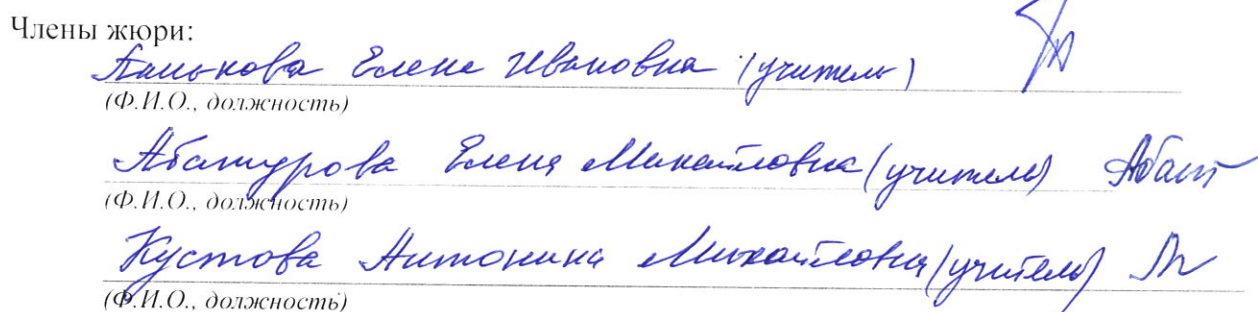 Члены жюри:
Елена Ивановна (учитель)
(Ф.И.О., должность)
Абатурова Елена Михайловна (учитель) Абат
(Ф.И.О., должность)
Кустова Антонина Михайловна (учитель)
(Ф.И.О., должность)